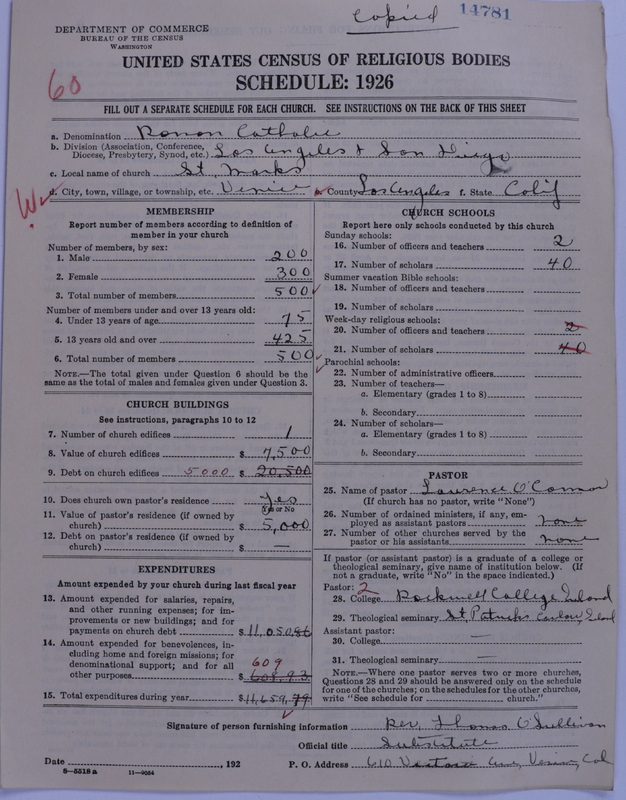 Copied 14781
DEPARTMENT OF COMMERCE
BUREAU OF THE CENSUS
WASHINGTON
UNITED STATES CENSUS OF RELIGIOUS BODIES
SCHEDULE: 1926
60
FILL OUT A SEPARATE SCHEDULE FOR EACH CHURCH. SEE INSTRUCTIONS ON THE BACK OF THIS SHEET
a. Denomination Roman Catholic
b. Division (Association, Conference, Diocese, Presbytery, Synod, etc.) Los Angeles & San Diego
c. Local name of church St. Marks
d. City, town, village, or township, etc. Venice e. County Los Angeles f. State Calif
MEMBERSHIP
Report number of members according to definition of
member in your church
Number of members, by sex:
1. Male 200
2. Female 300
3. Total number of members 500
Number of members under and over 13 years old:
4. Under 13 years of age 75
5. 13 years old and over 425
6. Total number of members 500
NOTE.—The total given under Question 6 should be
same as the total of males and females given under Question 3.
CHURCH BUILDINGS
See instructions, paragraphs 10 to 12
7. Number of church edifices 1
8. Value of church edifices $ 7,500
9. Debt on church edifices 5000 $ 20,500
10. Does church own pastor's residence Yes
Yes or No
11. Value of pastor's residence (if owned by
church) $ 5,000
12. Debt on pastor's residence (if owned by
church) $ —
EXPENDITURES
Amount expended by your church during last fiscal year
13. Amount expended for salaries, repairs,
and other running expenses; for im-
provements or new buildings; and for
payments on church debt $ 11,050.86
14. Amount expended for benevolences, in-
cluding home and foreign missions; for
denominational support; and for all 609
other purposes $ 608.93
15. Total expenditures during year $ 11,659.79
CHURCH SCHOOLS
Report here only schools conducted by this church
Sunday schools:
16. Number of officers and teachers 2
17. Number of scholars 40
Summer vacation Bible schools:
18. Number of officers and teachers
19. Number of scholars
Week-day religious schools:
20. Number of officers and teachers 2
21. Number of scholars 40
Parochial schools:
22. Number of administrative officers
23. Number of teachers—
a. Elementary (grades 1 to 8)
b. Secondary
24. Number of scholars—
a. Elementary (grades 1 to 8)
b. Secondary
PASTOR
25. Name of pastor Laurence O'Connor
(If church has no pastor, write "None")
26. Number of ordained ministers, if any, em-
ployed as assistant pastors none
27. Number of other churches served by the
pastor or his assistants none
If pastor (or assistant pastor) is a graduate of a college or
theological seminary, give name of institution below. (If
not a graduate, write "No" in the space indicated.)
Pastor: 2
28. College Rockwell College Ireland
29. Theological seminary St Patricks Carlow, Ireland
Assistant pastor:
30. College —
31. Theological seminary —
NOTE.—Where one pastor serves two or more churches,
Questions 28 and 29 should be answered only on the schedule
for one of the churches; on the schedules for the other churches,
write "See schedule for church."
Signature of person furnishing information Rev. Thomas O'Sullivan
Official title Substitute
Date , 192 P. O. Address 610 Ave, Venice, Cal
8—5518 a 11—9054